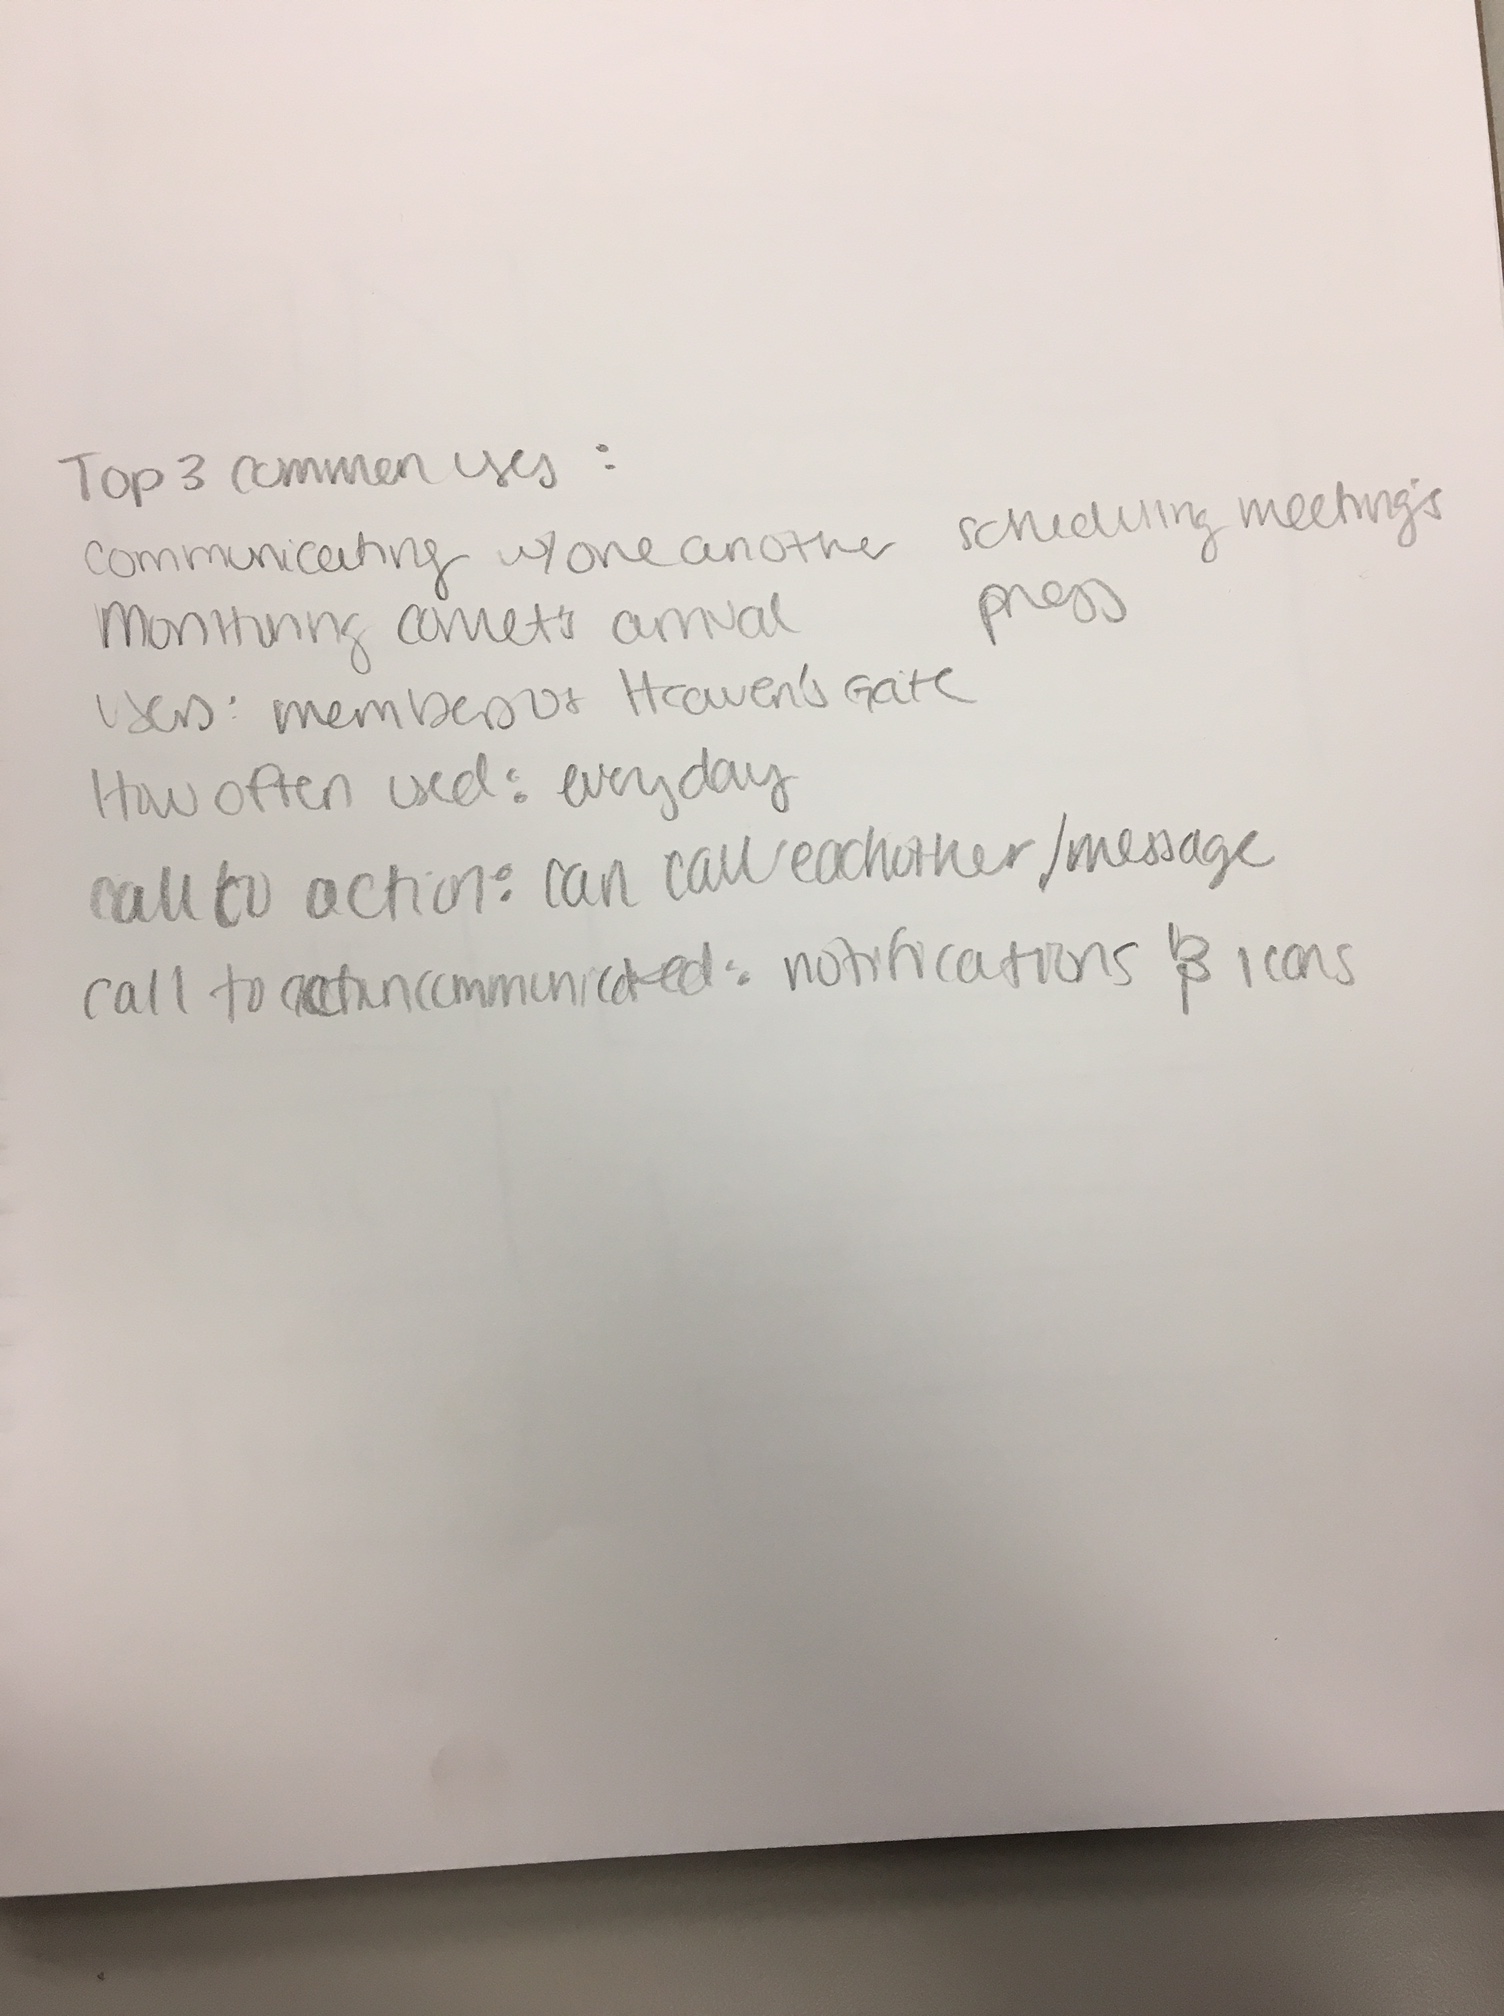 Top 3 common uses :
communicating w/ one another scheduling meetings
Monitoring comet's arrival press
Users: members of Heaven's Gate
How often used: everyday
call to action: can call eachother/message
call to action communicated: notifications & icons